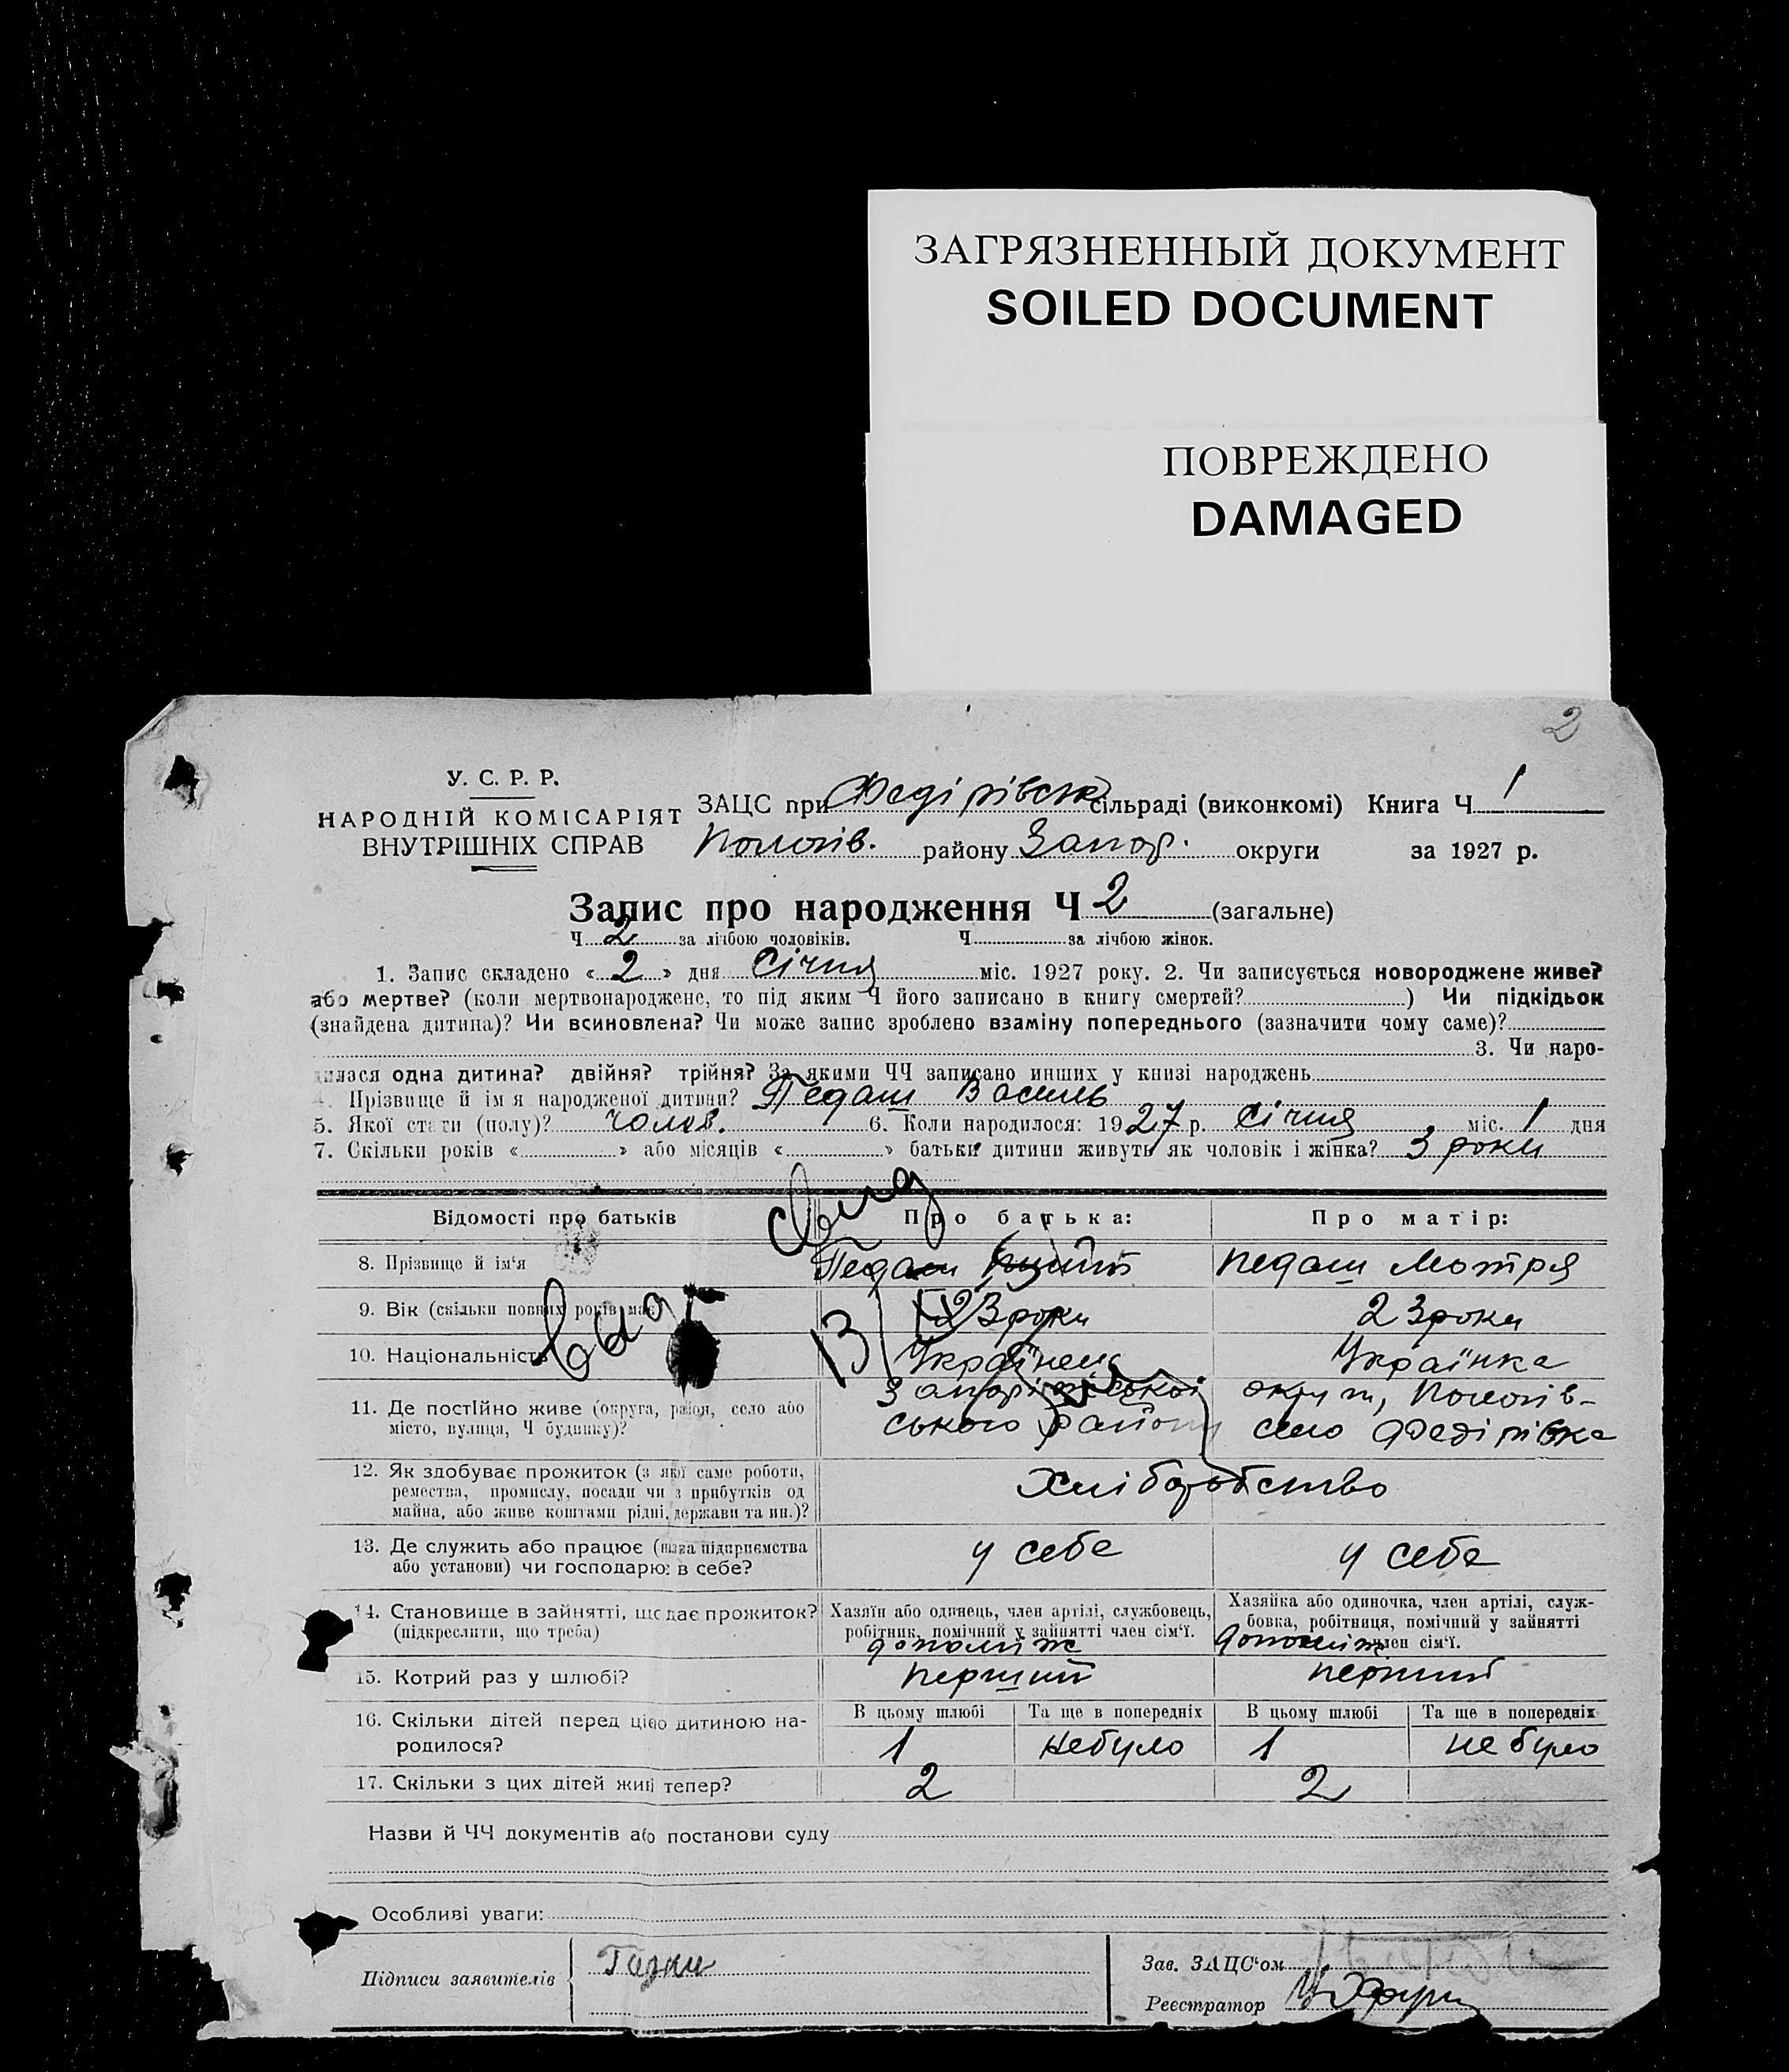 ЗАГРЯЗНЕННЫЙ ДОКУМЕНТ
SOILED DOCUMENT
ПОВРЕЖДЕНО
DAMAGED
2
У. С. Р. Р.
НАРОДНІЙ КОМІСАРІЯТ
ВНУТРІШНІХ СПРАВ
ЗАЦС при Федірівск сільраді (виконкомі) Книга Ч. 1
Пологів. району Запор. округи за 1927 р.
Запис про народження Ч 2 (загальне)
Ч. 2 за лічбою чоловіків. Ч. за лічбою жінок.
1. Запис складено « 2 » дня Січня міс. 1927 року. 2. Чи записується новороджене живе?
або мертве? (коли мертвонароджене, то під яким Ч його записано в книгу смертей? ) Чи підкідьок
(знайдена дитина)? Чи всиновлена? Чи може запис зроблено взаміну попереднього (зазначити чому саме)?
3. Чи наро-
дилася одна дитина? двійня? трійня? За якими ЧЧ записано инших у книзі народжень
4. Прізвище й ім'я народженої дитини? Педаш Василь
5. Якої стати (полу)? чолов. 6. Коли народилося: 1927 р. Січня міс. 1 дня
7. Скільки років « » або місяців « » батьки дитини живуть як чоловік і жінка? 3 роки
Відомості про батьків Про батька: Про матір:
8. Прізвище й ім'я Педаш Педаш Мотря
9. Вік (скільки повних років має) 23 роки 23 роки
10. Національність Українець Українка
11. Де постійно живе (округа, район, село або
місто, вулиця, Ч будинку)?
Запорізької округи, Пологів-
ського району село Федірівка
12. Як здобуває прожиток (з якої саме роботи,
ремества, промислу, посади чи з прибутків од
майна, або живе коштами рідні, держави та ин.)?
Хліборобство
13. Де служить або працює (назва підприємства
або установи) чи господарює в себе?
у себе у себе
14. Становище в зайнятті, що дає прожиток?
(підкреслити, що треба)
Хазяїн або одинець, член артілі, службовець,
робітник, помічний у зайнятті член сім'ї.
допоміж
Хазяйка або одиночка, член артілі, служ-
бовка, робітниця, помічний у зайнятті
член сім'ї.
допоміж
15. Котрий раз у шлюбі? перший перший
16. Скільки дітей перед цією дитиною на-
родилося?
В цьому шлюбі Та ще в попередніх В цьому шлюбі Та ще в попередніх
1 небуло 1 не було
17. Скільки з цих дітей живі тепер? 2 2
Назви й ЧЧ документів або постанови суду
Особливі уваги:
Підписи заявителів
Зав. ЗАЦС'ом
Реєстратор